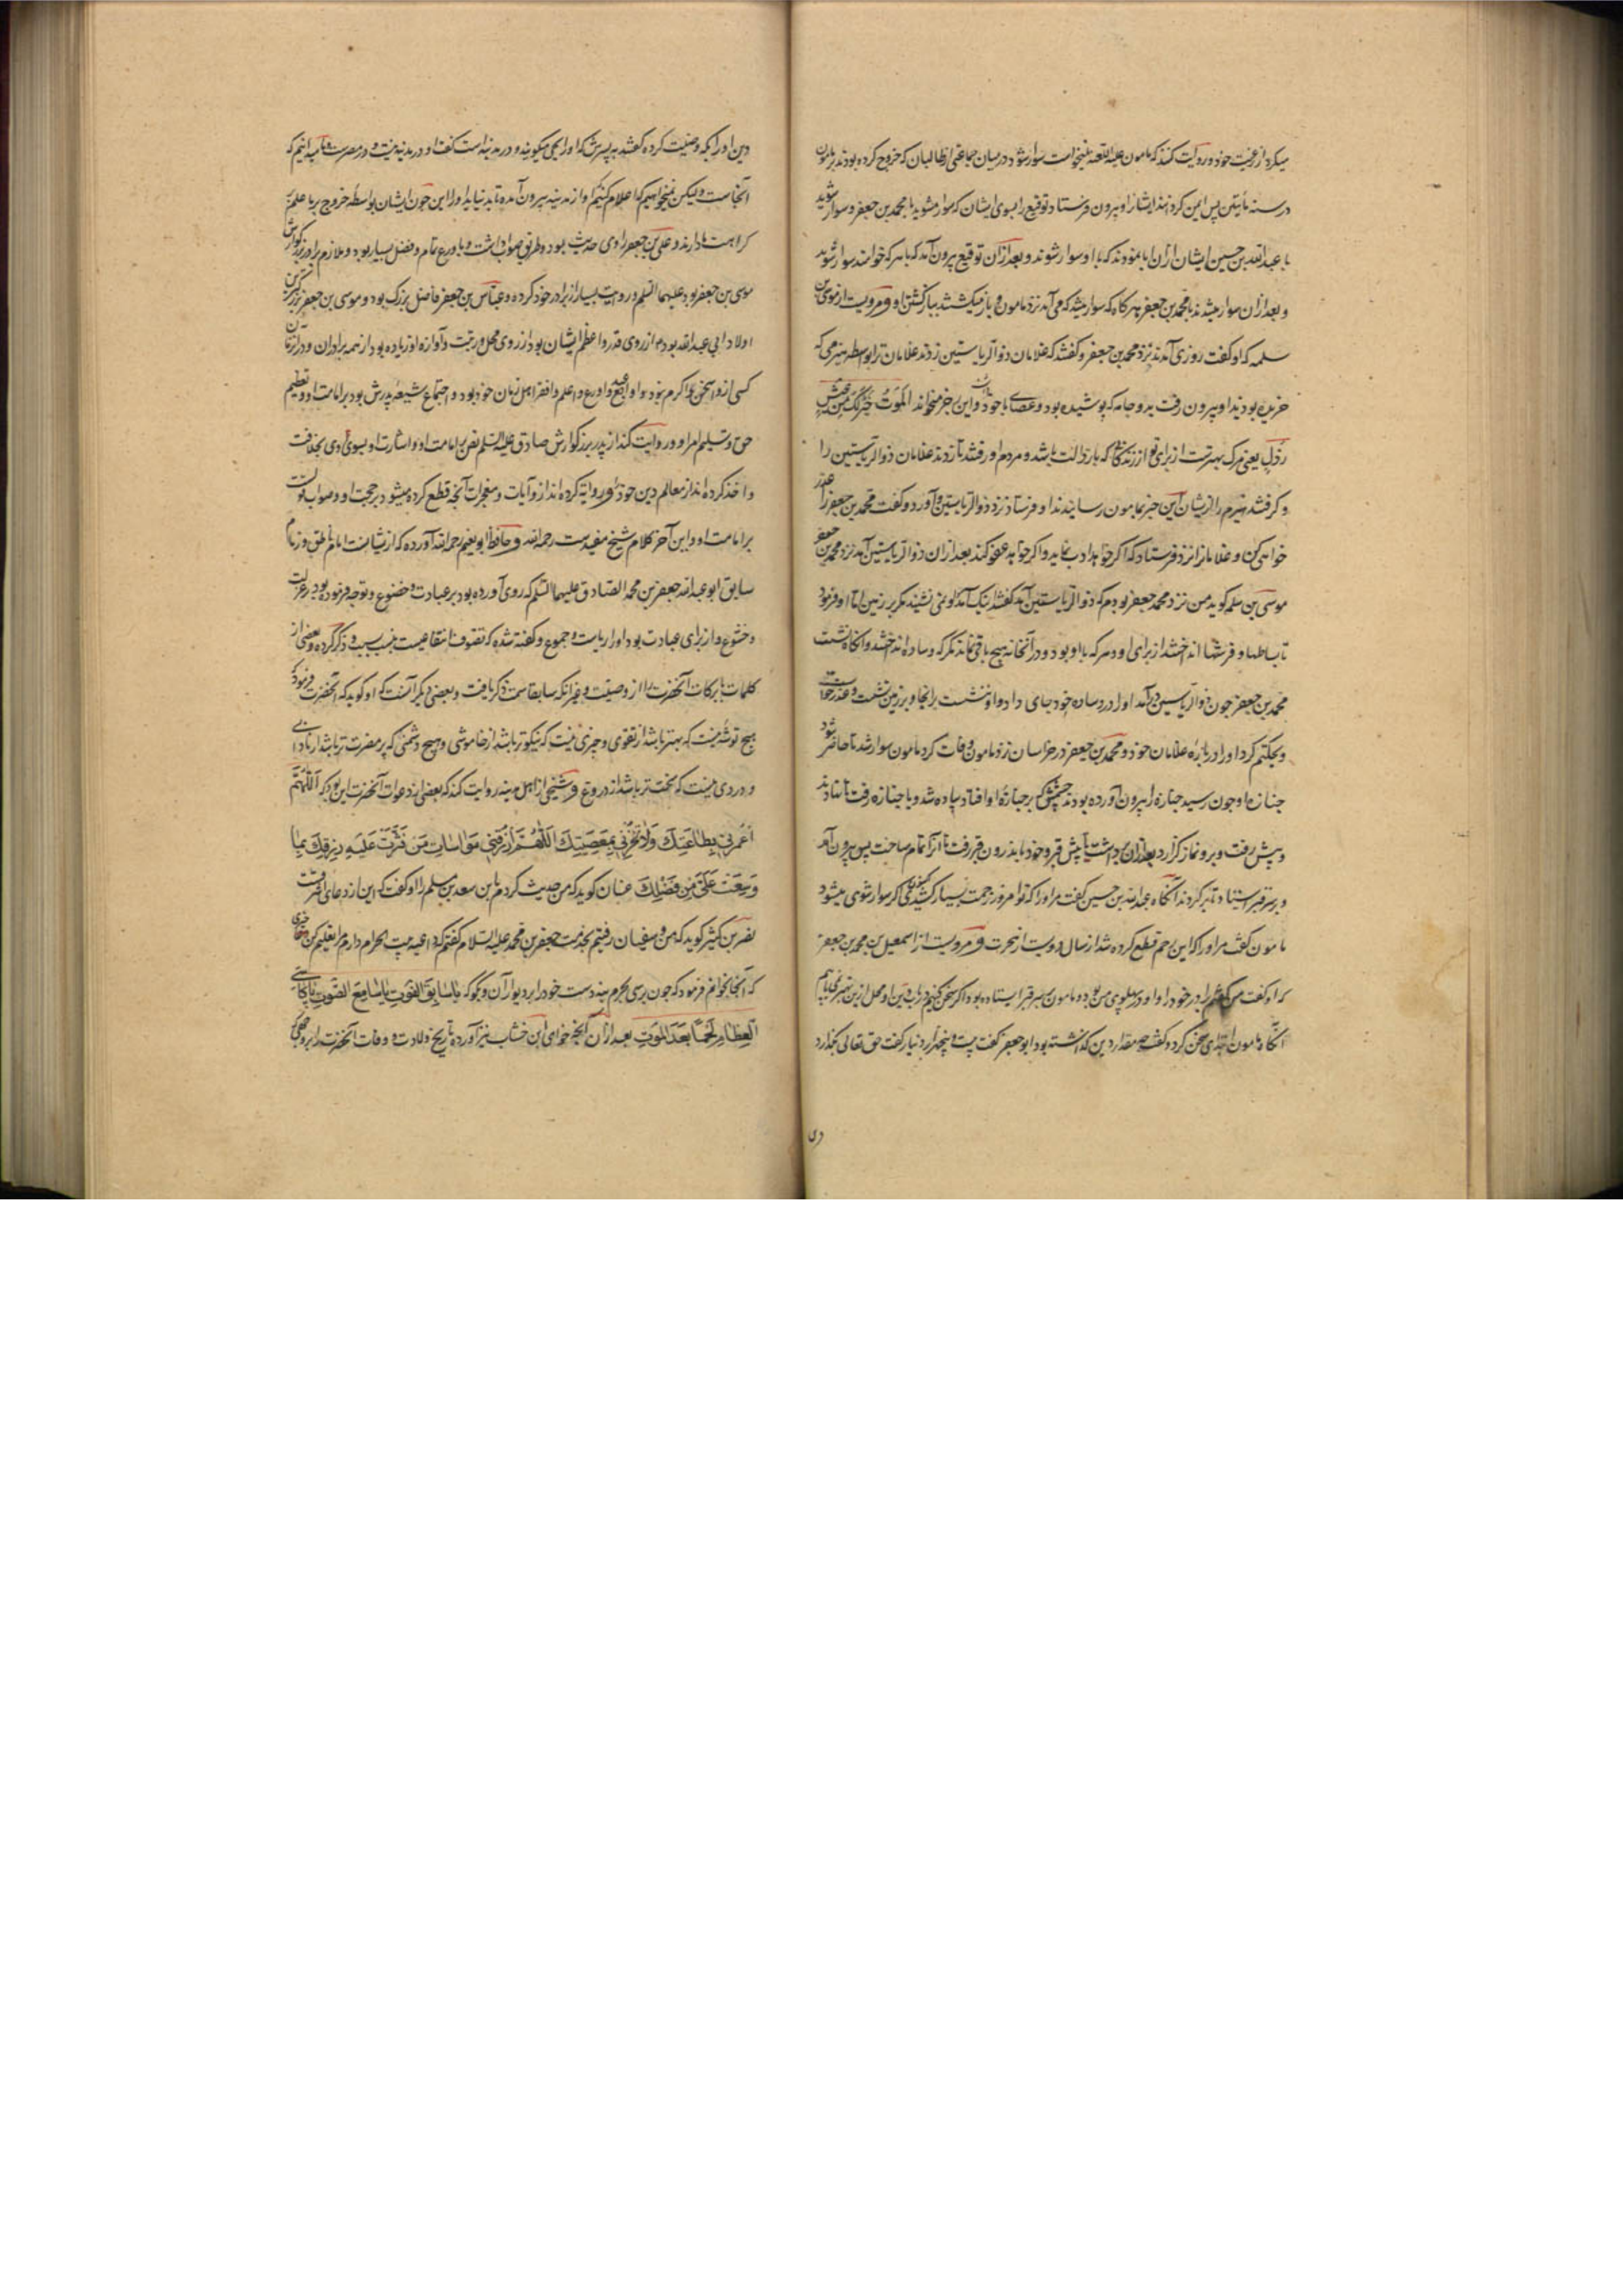 میکرد از رعیت خود و روایت کنند که مامون علیه اللعنه نمیخواست سوار شود در میان جماعتی از طالبیان که خروج کرده بودند بر مامون
در سنه مایتین پس ایمن کرد بدیشانرا و بیرون فرستاد توقیع را بسوی ایشان که سوار مشوید با محمد بن جعفر و سوار شوید
با عبدالله بن حسین ایشان ازان ابا نمودند که با او سوار شوند و بعد ازان توقیع بیرون آمد که با هر که خواهند سوار شوند
و بعد ازان سوار میشدند با محمد بن جعفر هر کاه که سوار میشد که می آمد نزد مامون و باز میکشتند بباز کشتن او و مرویست از موسی بن
سلمه که او کفت روزی آمدند نزد محمد بن جعفر و کفتند که غلامان ذوالریاستین زدند غلامان ترا بواسطه هیزمی که
خریده بودند او بیرون رفت بدو جامه که پوشیده بود و عصای با خود داشت و این رجز میخواند الموت خیر لک من عیش
بذل یعنی مرک بهترست از برای تو از زندکانی که بارذالت باشد و مردم او رفتند تا زدند غلامان ذوالریاستین را
و کرفتند هیزم را از ایشان این خبر بمامون رسانیدند او فرستاد نزد ذوالریاستین و آورد و کفت محمد بن جعفر را عذر
خواهی کن و غلامانرا نزد او فرستاد که اکر خواهد ادب نماید و اکر خواهد عفو کند بعد ازان ذوالریاستین آمد نزد محمد بن جعفر
موسی بن سلمه کوید من نزد محمد جعفر بودم که ذوالریاستین آمد کفتند اینک آمد او نمی نشیند مکر بر زمین اما او فرمود
تا بساطها و فرشها انداختند از برای او و هر که با او بود و در آنخانه هیچ باقی نماند مکر که وساده انداختند و آنکاه نشست
محمد بن جعفر چون ذوالریاستین در آمد او را در وساده خود جای داد و او ننشست بر انجا و بر زمین نشست و عذر خواست
و حکم کرد او را در باره غلامان خود و محمد بن جعفر در خراسان نزد مامون وفات کرد مامون سوار شد تا حاضر شود
جنازه او چون رسید جنازه را بیرون آورده بودند چشمش که بر جنازه او افتاد پیاده شد و با جنازه رفت تا نهادند
و پیش رفت و برو نماز کزارد بعد ازان برداشت تا پیش قبر و خود باندرون قبر رفت تا آنرا تمام ساخت پس بیرون آمد
و بر سر قبر استاد تا پر کردند آنکاه عبدالله بن حسین کفت مر او را که تو امروز زحمت بسیار کشیدی اکر سوار شوی میشود
مامون کفت مر او را که این رحم قطع کرده شد از سال دویست از هجرت و مرویست از اسمعیل بن محمد بن جعفر
که او کفت من کفتم برادر خود را و او در پهلوی من بود و مامون بر سر قبر ایستاده بود اکر سخن کنیم در باب دین او محل ازین بهتر نمی یابیم
آنکاه مامون ابتدای سخن کرد و کفت چه مقدار دین کذاشته بود ابو جعفر کفت بیست و پنجهزار دینار کفت حق تعالی بکزارد
دین
دین او را بکه وصیت کرده کفتند به پسرش که او را یحیی میکویند و در مدینه است کفت او در مدینه نیست و در مصرست ما میدانیم که
آنجاست ولیکن نمیخواهیم که اعلام کنیم او از مدینه بیرون آمده تا بد نیاید او را این چون ایشان بواسطه خروج بر ما علم
کراهت ما دارند و علی بن جعفر راوی حدیث بود و طریق صواب داشت و با ورع تمام و فضل بسیار بود و ملازم برادر بزرکوارش
موسی بن جعفر بود علیهما السلم و روایت بسیار از برادر خود کرده و عباس بن جعفر فاضل بزرک بود و موسی بن جعفر بزرکترین
اولاد ابی عبدالله بود از روی قدر و اعظم ایشان بود از روی محل و رتبت و آوازه او زیاده بود از همه برادران و در آن زمان
کسی ازو اسخی و اکرم نبود و او اعبد و اورع و اعلم و افقه اهل زمان خود بود و اجتماع شیعه پدرش بود بر امامت او و تعظیم
حق و تسلیم امر او و روایت کنند از پدر بزرکوارش صادق علیه السلم نص بر امامت او و اشارت او بسوی وی بخلافت
و اخذ کرده اند از معالم دین خود و روایة کرده اند ازو آیات و معجزات آنچه قطع کرده میشود در حجت او و صواب قول
بر امامت او و این آخر کلام شیخ مفیدست رحمه الله و حافظ ابو نعیم رحمه الله آورده که از ایشانست امام ناطق و زمام
سابق ابو عبدالله جعفر بن محمد الصادق علیهما السلم که روی آورده بود بر عبادت و خضوع و توجه فرموده بود بر عزلت
و خشوع و از برای عبادت بود او را ریاست و جموع و کفته شده که تصوف انتفاعیست بنسب و ذکر کرده بعضی از
کلمات با برکات آنحضرت را از وصیت و غیر آنکه سابقا سمت ذکر یافت و بعضی دیکر آنست که او کوید که آنحضرت فرمود که
هیچ توشه نیست که بهتر باشد از تقوی و چیزی نیست که نیکوتر باشد از خاموشی و هیچ دشمنی که پر مضرت تر باشد از نادانی
و دردی نیست که سخت تر باشد از دروغ و شیخی از اهل مدینه روایت کند که بعضی از دعوات آنحضرت این بود که اللهم
اعمرنی بطاعتک ولا تخزنی بمعصیتک اللهم ارزقنی مواسات من قترت علیه رزقک بما
وسعت علی من فضلک غسان کوید که من حدیث کردم باین سعد بن سلم را او کفت که این از دعای اشرافست
نصر بن کثیر کوید که من و سفیان رفتیم بخدمت جعفر بن محمد علیه السلام کفتم که داعیه بیت الحرام دارم مرا تعلیم کن چیزی
که آنجا بخوانم فرمود که چون برسی بحرم بنه دست خود را بر دیوار آن و بکو که یا سابق الفوت یا سامع الصوت یا کاسی
العظام لحما بعد الموت بعد ازان آنچه خواهی ابن خشاب نیز آورده تاریخ ولادت و وفات آنحضرت را بر وجهی که